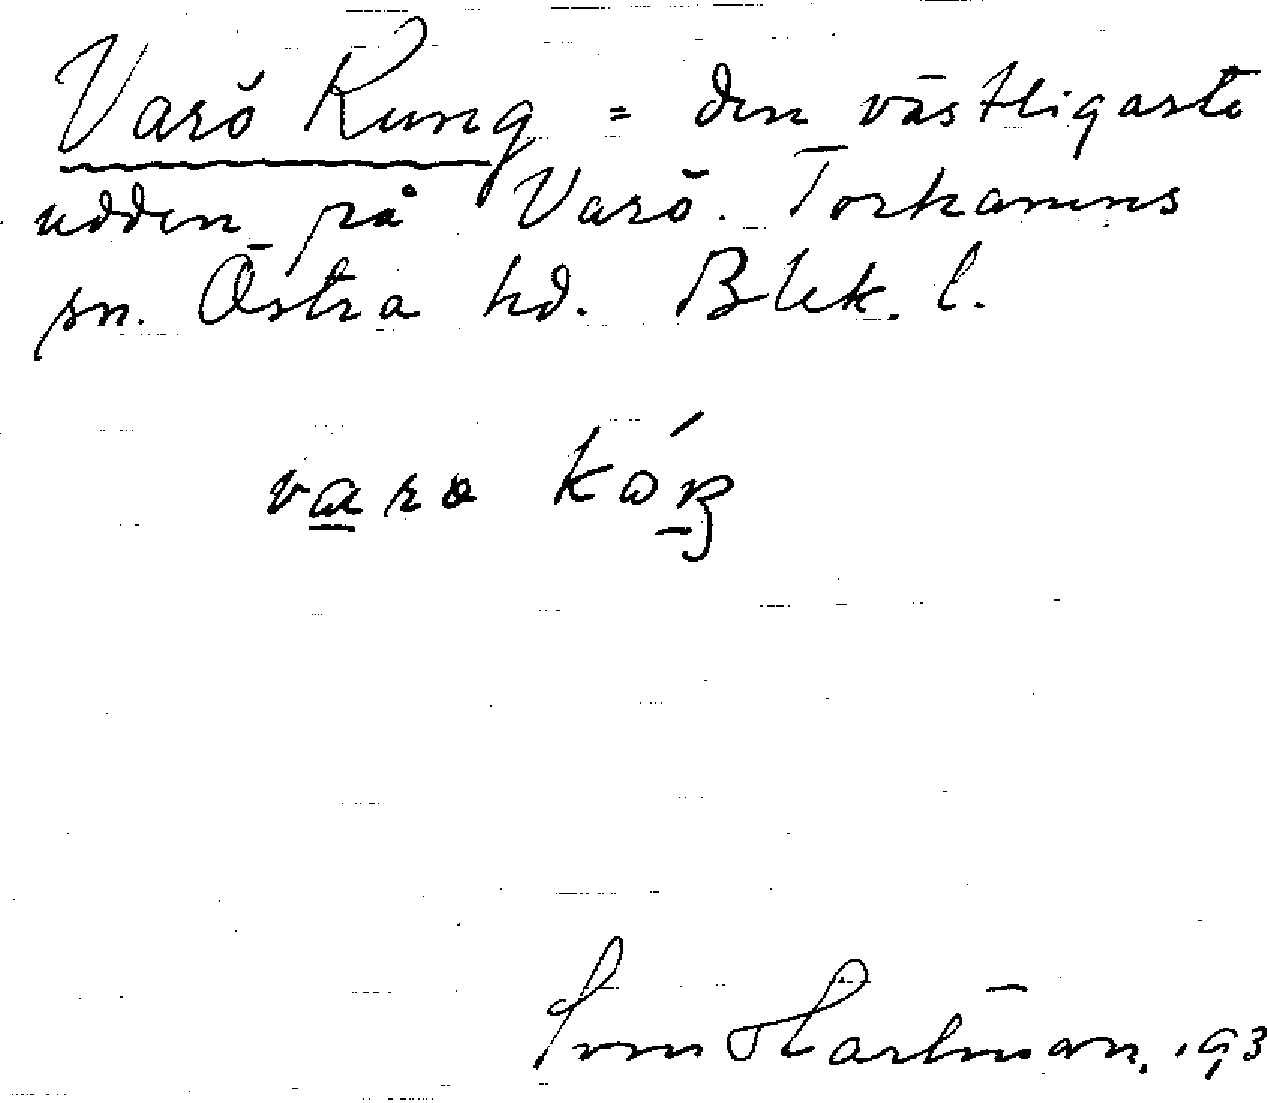 Varö Kung = den västligaste
udden på Varö. Torhamns
sn. Östra hd. Blek. l.
varo
Sven Hartman. 193